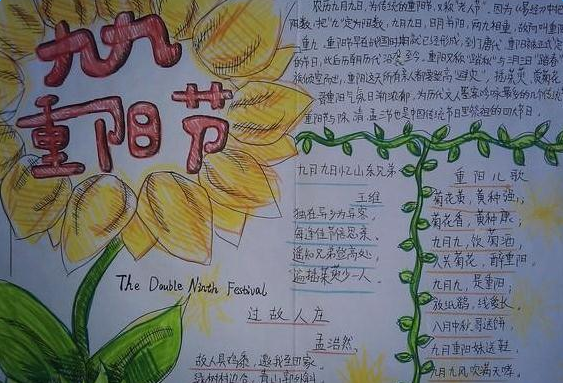 九九
重阳节
农历九月九日,为传统的重阳节,又称"老人节"。因为《易经》中把
阳数,把"九"定为阳数,九月九日,日月并阳,两九相重,故而叫重阳
重九,重阳节早在战国时期就已经形成,到了唐代,重阳被正式定
的节日,此后历朝历代沿袭至今。重阳又称"踏秋"与三月三日"踏春"
倾室而出,重阳这天所有亲人都要登高"避灾",插茱萸、赏菊花
重阳与除、清、盂三节也是中国传统节日里祭祖的四大节日。
九月九日忆山东兄弟
王维
独在异乡为异客,
每逢佳节倍思亲。
遥知兄弟登高处,
遍插茱萸少一人。
重阳儿歌
菊花黄,黄种强;
菊花香,黄种康;
九月九,饮菊酒,
人共菊花,醉重阳。
九月九,是重阳;
放纸鹞,线爰长。
八月中秋,哥送饼,
九月重阳妹送鞋
九月九,风吹满天哮。
The Double Ninth Festival
过故人庄
孟浩然
故人具鸡黍,邀我至田家。
绿树村边合,青山郭外斜。